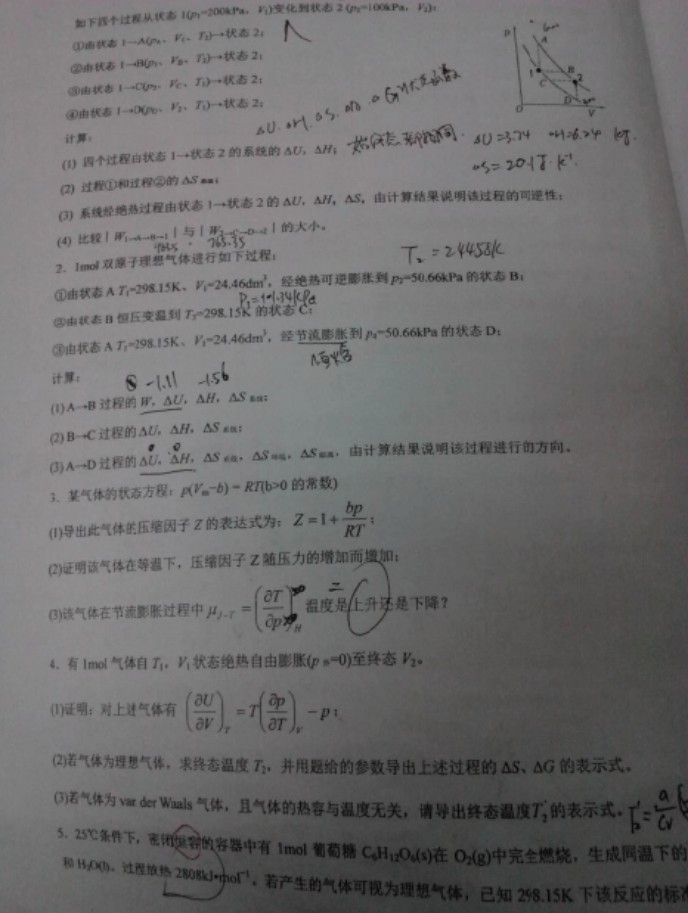 如下四个过程从状态1(p₁=200kPa,V₁)变化到状态2(p₂=100kPa,V₂):
①由状态1→A(pA、V₁、T₂)→状态2;
②由状态1→B(p₁、VB、T₂)→状态2;
③由状态1→C(p₂、VC、T₁)→状态2;
④由状态1→D(pD、V₂、T₁)→状态2;
计算:
(1) 四个过程由状态1→状态2的系统的ΔU,ΔH;
ΔU=3.74 ΔH=6.24 kJ.
ΔS=20.18
(2) 过程①和过程②的ΔS
(3) 系统经绝热过程由状态1→状态2的ΔU,ΔH,ΔS,由计算结果说明该过程的可逆性;
(4) 比较|W₁→A→B→₁|与|W₂→C→D→₂|的大小。
T₂=244.58K
2. 1mol双原子理想气体进行如下过程:
①由状态A T₁=298.15K、V₁=24.46dm³,经绝热可逆膨胀到p₂=50.66kPa的状态B;
②由状态B恒压变温到T₃=298.15K的状态C;
③由状态A T₁=298.15K、V₁=24.46dm³,经节流膨胀到p₄=50.66kPa的状态D;
恒焓
计算:
-1.11 -1.56
(1) A→B过程的W,ΔU,ΔH,ΔS系统;
(2) B→C过程的ΔU,ΔH,ΔS系统;
0 0
(3) A→D过程的ΔU,ΔH,ΔS系统,ΔS环境,ΔS隔离,由计算结果说明该过程进行的方向。
3. 某气体的状态方程:p(Vm−b)=RT(b>0的常数)
(1)导出此气体的压缩因子Z的表达式为:Z=1+bp/RT;
(2)证明该气体在等温下,压缩因子Z随压力的增加而增加;
(3)该气体在节流膨胀过程中μJ-T=(∂T/∂p)H 温度是上升还是下降?
4. 有1mol气体自T₁,V₁状态绝热自由膨胀(p外=0)至终态V₂。
(1)证明:对上述气体有(∂U/∂V)T=T(∂p/∂T)V−p;
(2)若气体为理想气体,求终态温度T₂,并用题给的参数导出上述过程的ΔS、ΔG的表示式。
(3)若气体为van der Waals气体,且气体的热容与温度无关,请导出终态温度T₂'的表示式。
5. 25℃条件下,密闭恒容的容器中有1mol葡萄糖C₆H₁₂O₆(s)在O₂(g)中完全燃烧,生成同温下的
和H₂O(l),过程放热2808kJ•mol⁻¹。若产生的气体可视为理想气体,已知298.15K下该反应的标准